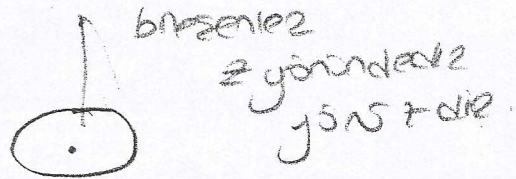 bileşenler
z yönündedir
yönü + dir.